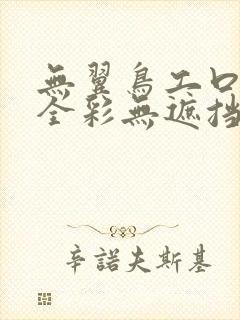 無翼鳥工口
全彩無遮挡
辛諾夫斯基